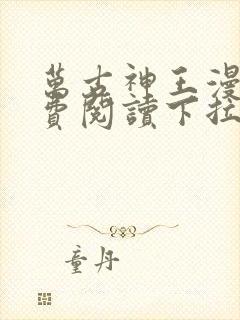 萬古神王漫
費閱讀下拉
童丹